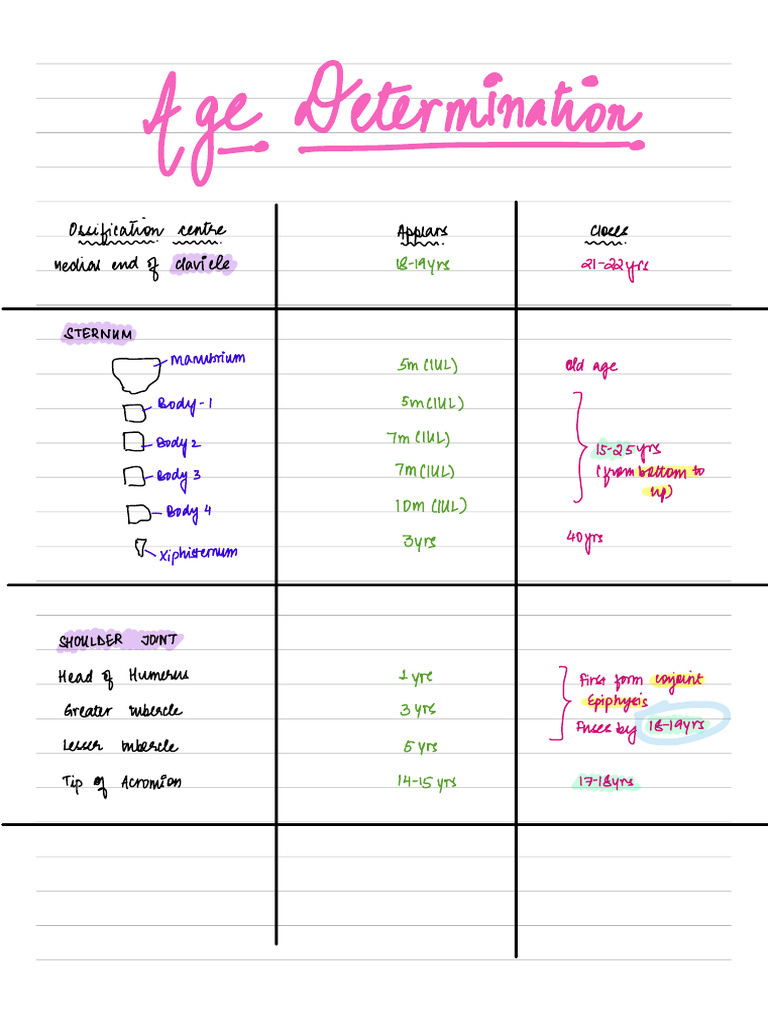 Age Determination
Ossification centre Appears Closes
Medial end of clavicle 18-19yrs 21-22yrs
STERNUM
Manubrium 5m(IUL) Old age
Body-1 5m(IUL)
Body 2 7m(IUL) 15-25yrs
Body 3 7m(IUL) (from bottom to
up)
Body 4 10m(IUL)
Xiphisternum 3yrs 40yrs
SHOULDER JOINT
Head of Humerus 1 yre First form conjoint
Greater tubercle 3 yrs Epiphysis
Fuses by 18-19yrs
Lesser tubercle 5 yrs
Tip of Acromion 14-15 yrs 17-18yrs